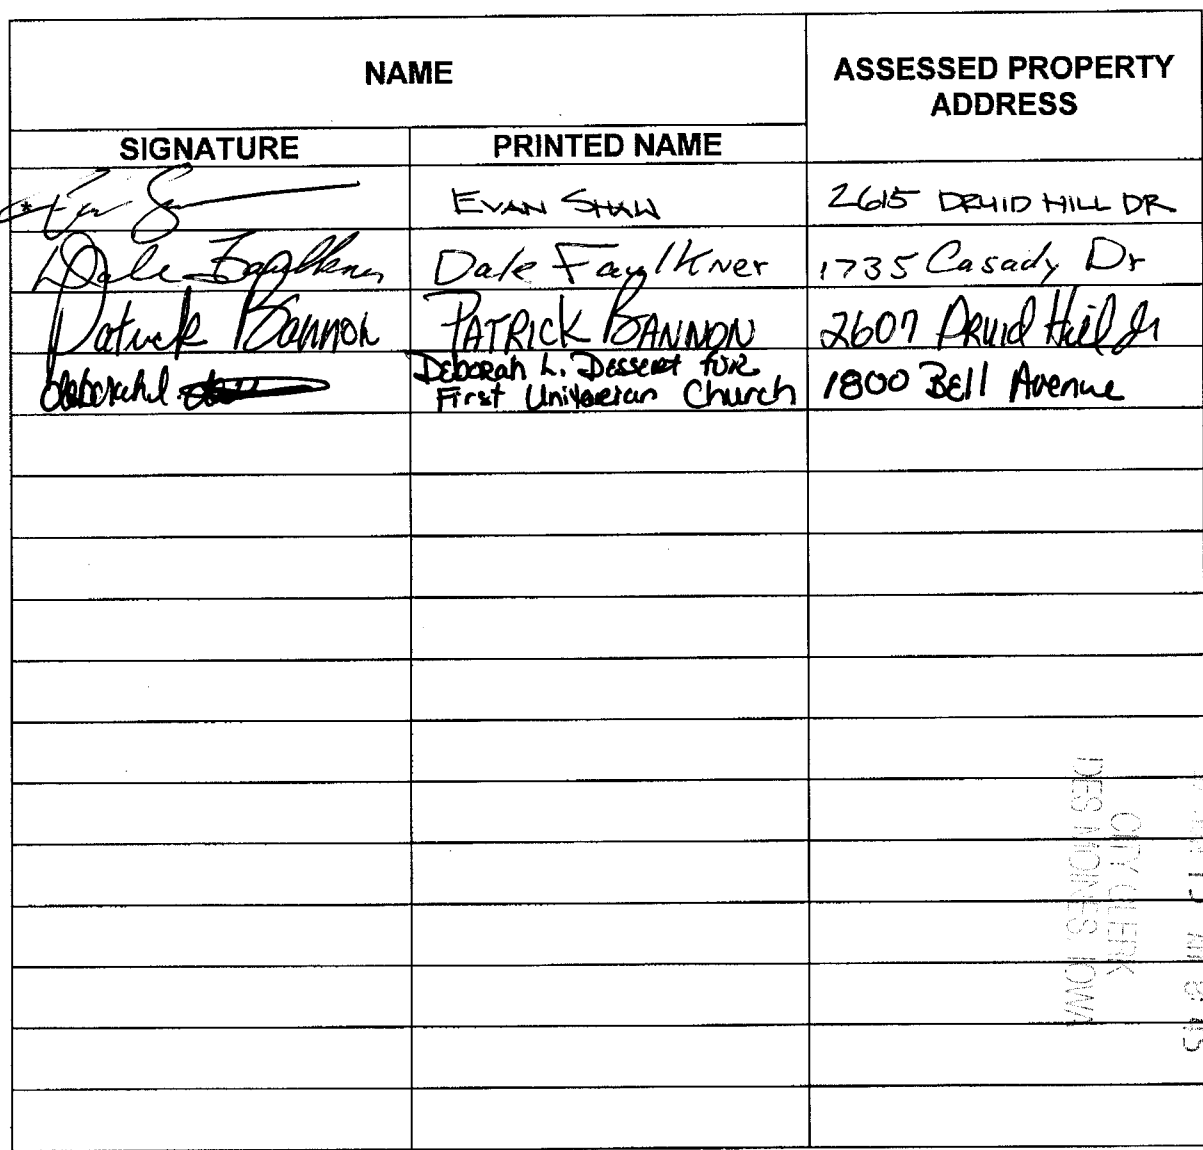 NAME
ASSESSED PROPERTY
ADDRESS
SIGNATURE
PRINTED NAME
EVAN SHAW
2615 DRUID HILL DR
Dale Faulkner
Dale Faulkner
1735 Casady Dr
Patrick Bannon
PATRICK BANNON
2607 Druid Hill Dr
Deborah L. Dessert for
First Unitarian Church
1800 Bell Avenue
CITY CLERK
DES MOINES, IOWA